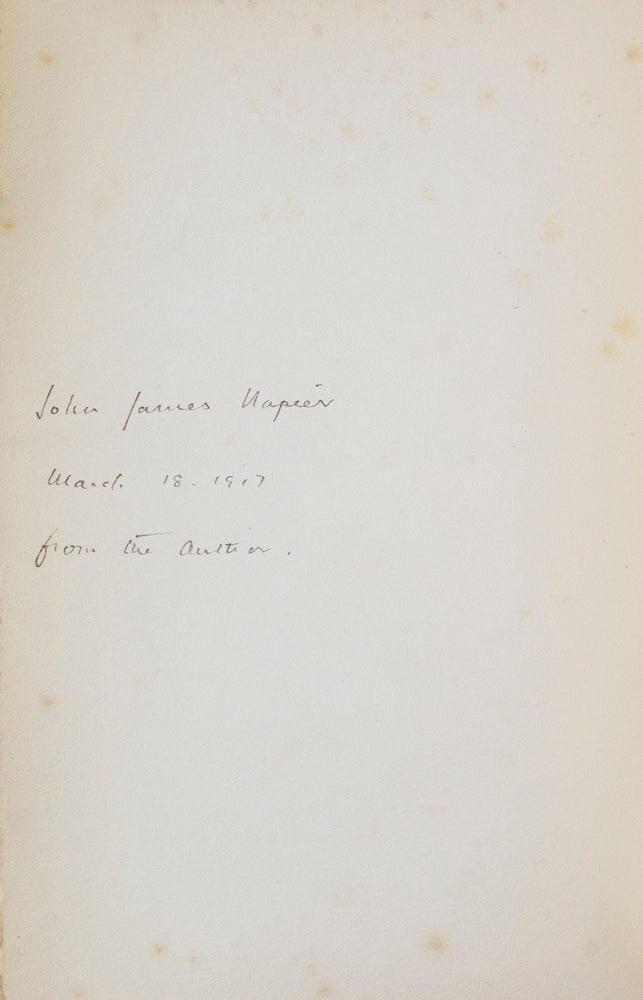 John James Napier
March 18. 1917
from the Author.